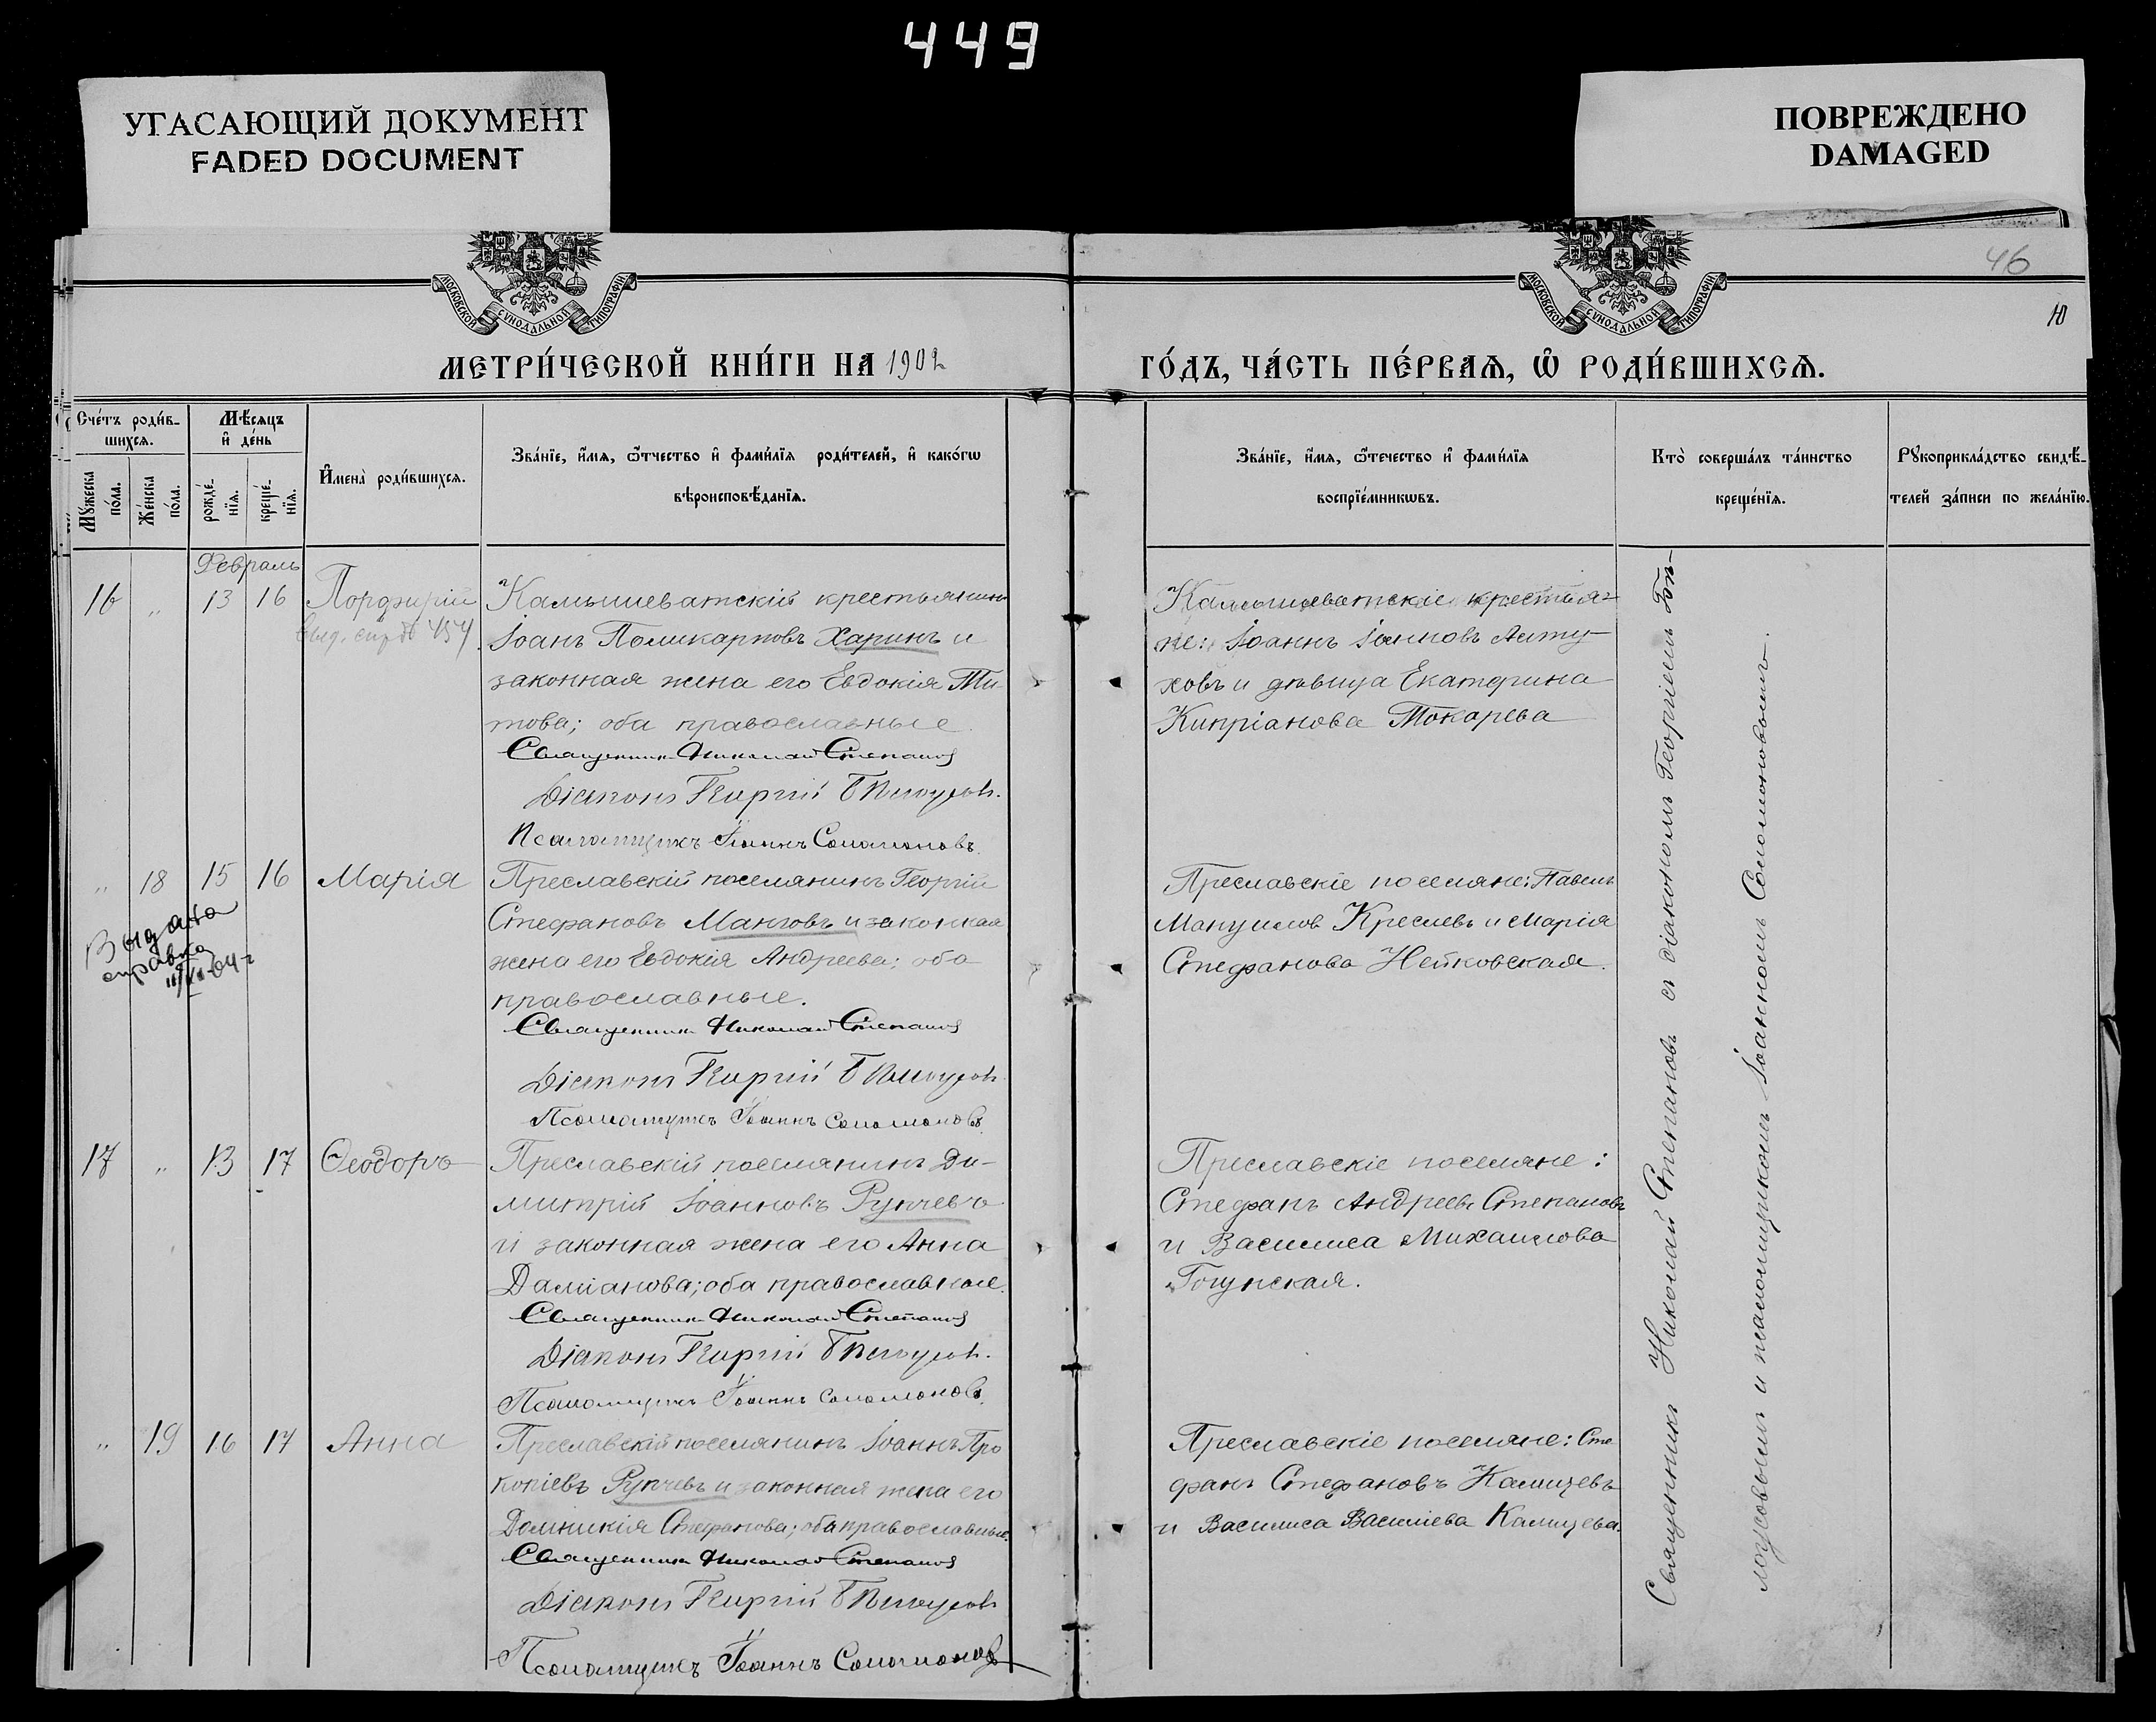 449
УГАСАЮЩИЙ ДОКУМЕНТ
FADED DOCUMENT
ПОВРЕЖДЕНО
DAMAGED
МОСКОВСКОЙ СѴНОДАЛЬНОЙ ТИПОГРАФІИ
МОСКОВСКОЙ СѴНОДАЛЬНОЙ ТИПОГРАФІИ
46
10
МЕТРИ́ЧЕСКОЙ КНИ́ГИ НА 1902
ГО́ДЪ, ЧА́СТЬ ПЕ́РВАѦ, Ѽ РОДИ́ВШИХСѦ.
Сче́тъ роди́в-
шихсѧ.
Мꙋ́жеска
по́ла.
Же́нска
по́ла.
Мѣ́сѧцъ
и҆ де́нь
рожде́-
нїѧ.
креще́-
нїѧ.
И҆мена̀ роди́вшихсѧ.
Зва́нїе, и҆́мѧ, ѻ҆́тчество и҆ фами́лїѧ роди́телей, и҆ како́гѡ
вѣроисповѣ́данїѧ.
Зва́нїе, и҆́мѧ, ѻ҆те́чество и҆ фами́лїѧ
воспрїе́мникѡвъ.
Кто̀ соверша́лъ та́инство
креще́нїѧ.
Рꙋкоприкла́дство свидѣ́-
телей за́писи по жела́нїю.
Февраль
16 " 13 16 Порфирій
454
Камышеватскій крестьянинъ
Іоанъ Поликарповъ Харинъ и
законная жена его Евдокія Ти-
това; оба православные
Священникъ Николай Степановъ
Діаконъ Георгій
Псаломщикъ Іоаннъ Соломоновъ.
Камышеватскіе крестья-
не: Іоаннъ Іоанновъ Алту-
ховъ и дѣвица Екатерина
Кипріанова Токарева
" 18 15 16 Марія
Выдана
справка
Преславскій поселянинъ Георгій
Стефановъ Манговъ и законная
жена его Евдокія Андреева; оба
православные.
Священникъ Николай Степановъ
Діаконъ Георгій
Псаломщикъ Іоаннъ Соломоновъ.
Преславскіе поселяне: Павелъ
Мануилов Креслевъ и Марія
Стефанова Нейковская.
17 " 13 17 Ѳеодоръ
Преславскій поселянинъ Ди-
митрій Іоанновъ Рупчевъ
и законная жена его Анна
Даміанова; оба православные.
Священникъ Николай Степановъ
Діаконъ Георгій
Псаломщикъ Іоаннъ Соломоновъ.
Преславскіе поселяне:
Стефанъ Андреевъ Степановъ
и Василиса Михаилова
Гогунская.
" 19 16 17 Анна
Преславскій поселянинъ Іоаннъ Про
копіевъ Рупчевъ и законная жена его
Домникія Стефанова; оба православные.
Священникъ Николай Степановъ
Діаконъ Георгій
Псаломщикъ Іоаннъ Соломоновъ
Преславскіе поселяне: Сте
фанъ Стефановъ Калицевъ
и Василиса Василіева Калицева.
Священникъ Николай Степановъ съ діакономъ Георгіемъ
и псаломщикомъ Іоанномъ Соломоновымъ.